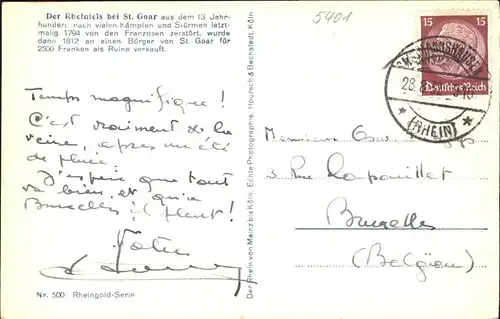 Der Rheinfels bei St. Goar aus dem 13 Jahr-
hundert, nach vielen Kämpfen und Stürmen letzt-
malig 1794 von den Franzosen zerstört, wurde
dann 1812 an einen Bürger von St. Goar für
2500 Franken als Ruine verkauft.
5401
Temps magnifique!
C'est vraiment de la
veine, après un été
de pluie.
J'espère que tout
va bien, et qu'à
Bruxelles il pleut!
Votre
Nr. 500 Rheingold-Serie
Der Rhein von Mainz bis Köln, Echte Photographie, Hoursch & Bechstedt, Köln
15 15
Deutsches Reich
(RHEIN)
Monsieur
3 Rue
Bruxelles
(Belgien)